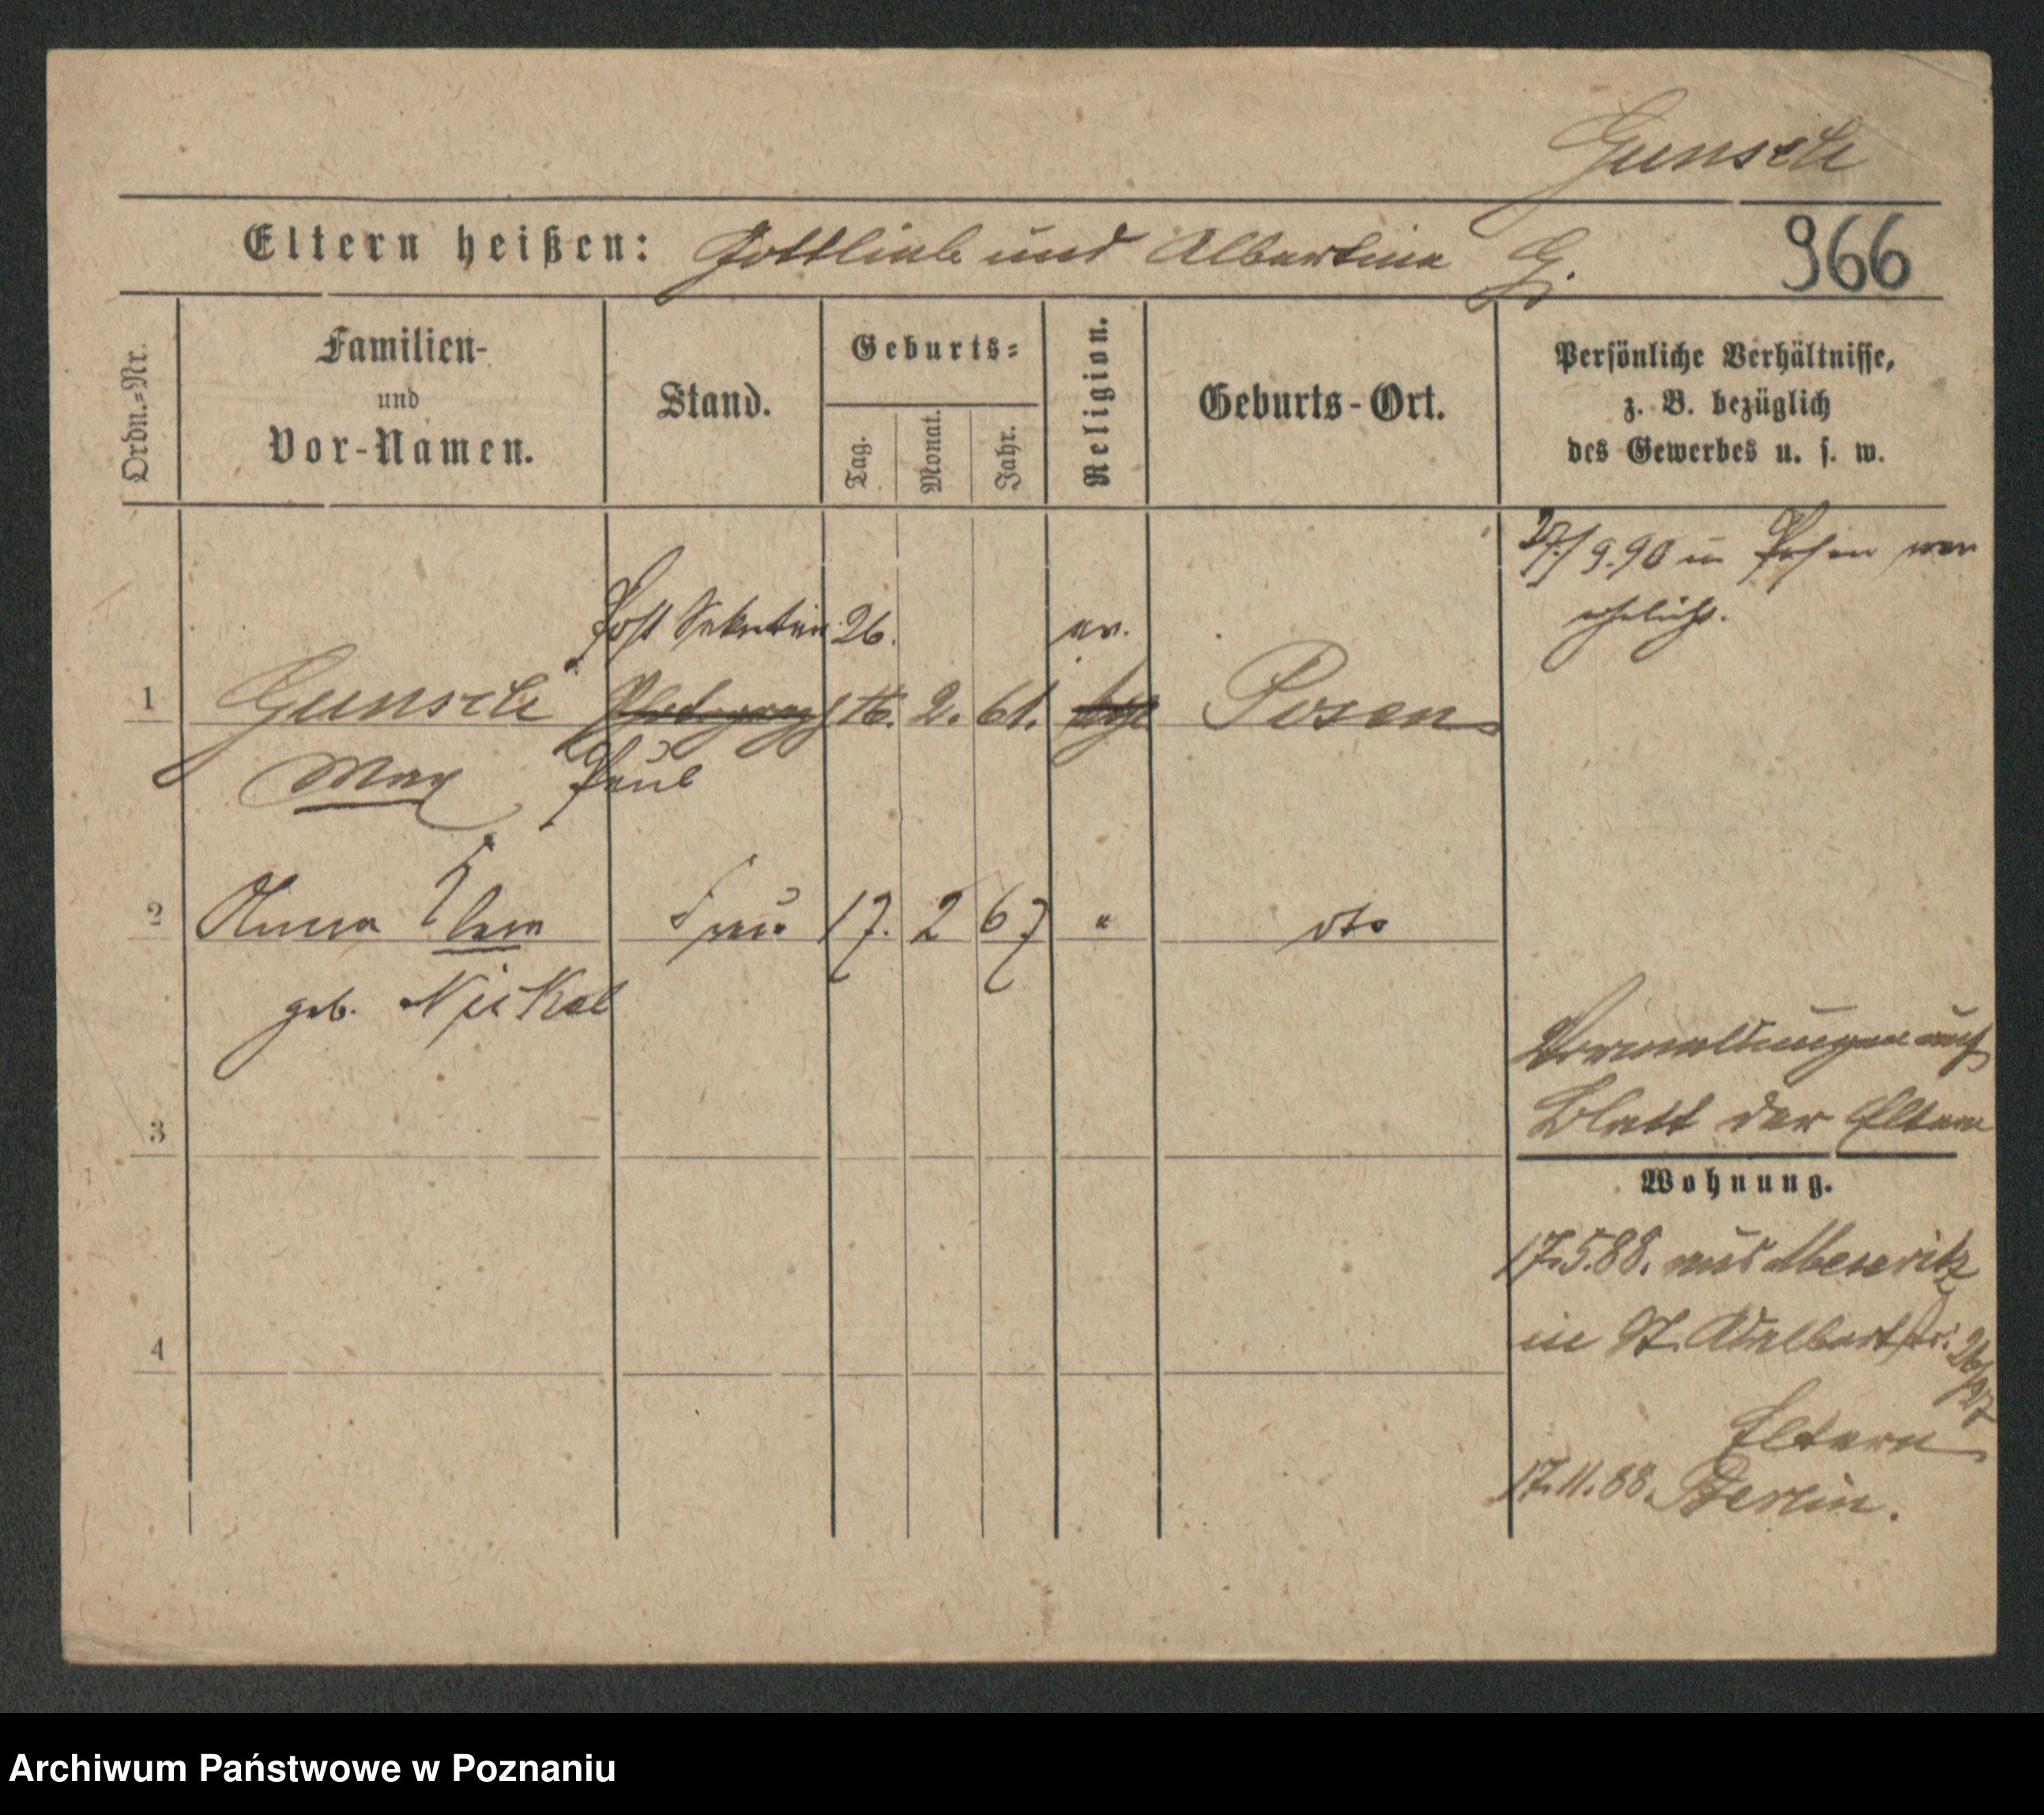 Gunsch
Eltern heißen: Gottlieb und Albertine G. 966
Ordn.-Nr.
Familien-
und
Vor-Namen.
Stand.
Geburts-
Tag.
Monat.
Jahr.
Religion.
Geburts-Ort.
Persönliche Verhältnisse,
z. B. bezüglich
des Gewerbes u. s. w.
27/9.90 in Posen ver
ehelicht.
Post Sekretär 26. ev.
1 Gunsch 2. 61. Posen
Max Paul
2 Anna Clara Frau 17. 2 67 " dto
geb. Nickel
3
4
auf
Blatt der Eltern
Wohnung.
17.5.88. aus Meseritz
in St. Adalbertstr. 26/27
Eltern
17.11.88. Berlin.
Archiwum Państwowe w Poznaniu